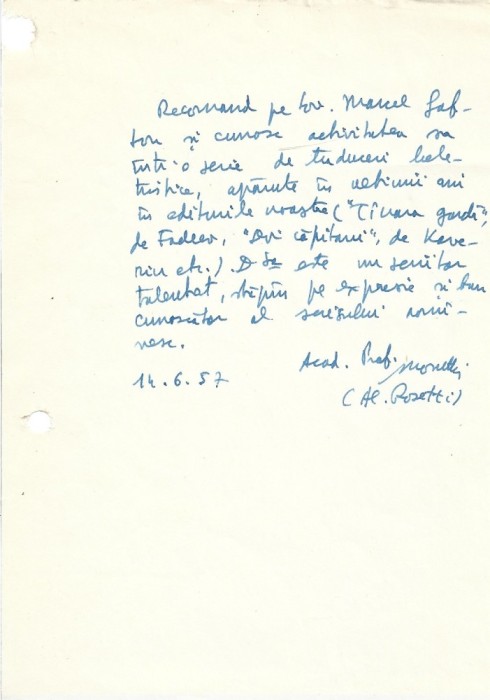 Recomand pe tov. Marcel Gaf-
ton și cunosc activitatea sa
într-o serie de traduceri bele-
tristice, apărute în ultimii ani
în editurile noastre ("Tînăra gardă",
de Fadeev, "Doi căpitani", de Kave-
rin etc.). D-sa este un scriitor
talentat, stăpîn pe expresie și bun
cunoscător al scrisului romî-
nesc.
Acad. Prof.
14.6.57
(Al. Rosetti)